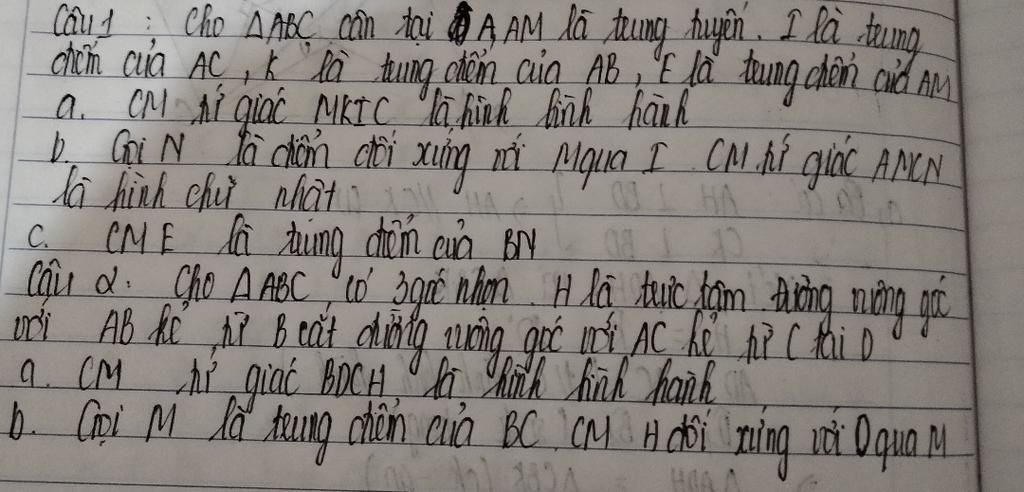 Câu 1 : Cho ΔABC cân tại A, AM là trung tuyến. I là trung
điểm của AC, K là trung điểm của AB, E là trung điểm của AM
a. CM tứ giác MKIC là hình bình hành
b. Gọi N là điểm đối xứng với M qua I. CM tứ giác AMCN
là hình chữ nhật
c. CM E là trung điểm của BN
Câu 2: Cho ΔABC có 3 góc nhọn. H là trực tâm. Đường vuông góc
với AB kẻ từ B cắt đường vuông góc với AC kẻ từ C tại D
a. CM tứ giác BDCH là hình bình hành
b. Gọi M là trung điểm của BC. CM H đối xứng với D qua M